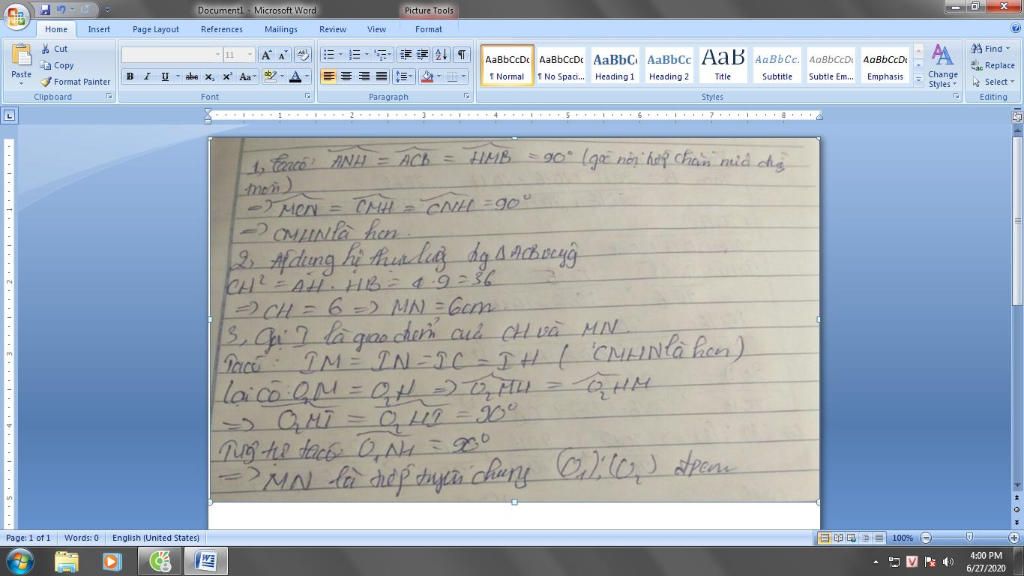 Document1 - Microsoft Word
Picture Tools
Home Insert Page Layout References Mailings Review View Format
Cut
Copy
Format Painter
Paste
11
AaBbCcDc AaBbCcDc AaBbCc AaBbCc AaB AaBbCc. AaBbCcDc AaBbCcDc
¶ Normal ¶ No Spaci... Heading 1 Heading 2 Title Subtitle Subtle Em... Emphasis
Change Styles
Find
Replace
Select
Clipboard Font Paragraph Styles Editing
1, Ta có: ANH = ACB = HMB = 90° (góc nội tiếp chắn nửa
tròn)
=> MCN = CMH = CNH = 90°
=> CMHN là hcn.
2, Áp dụng hệ thức lượng ΔACB
CH² = AH . HB = 4 . 9 = 36
=> CH = 6 => MN = 6cm
3, Gọi I là giao điểm của CH và MN.
Ta có: IM = IN = IC = IH ( CMHN là hcn)
lại có: O₂M = O₂H => O₂MH = O₂HM
=> O₂MI = O₂HI = 90°
Tương tự ta có O₁NH = 90°
=> MN là tiếp tuyến chung (O₁); (O₂) đpcm
Page: 1 of 1 Words: 0 English (United States) 100%
4:00 PM
6/27/2020